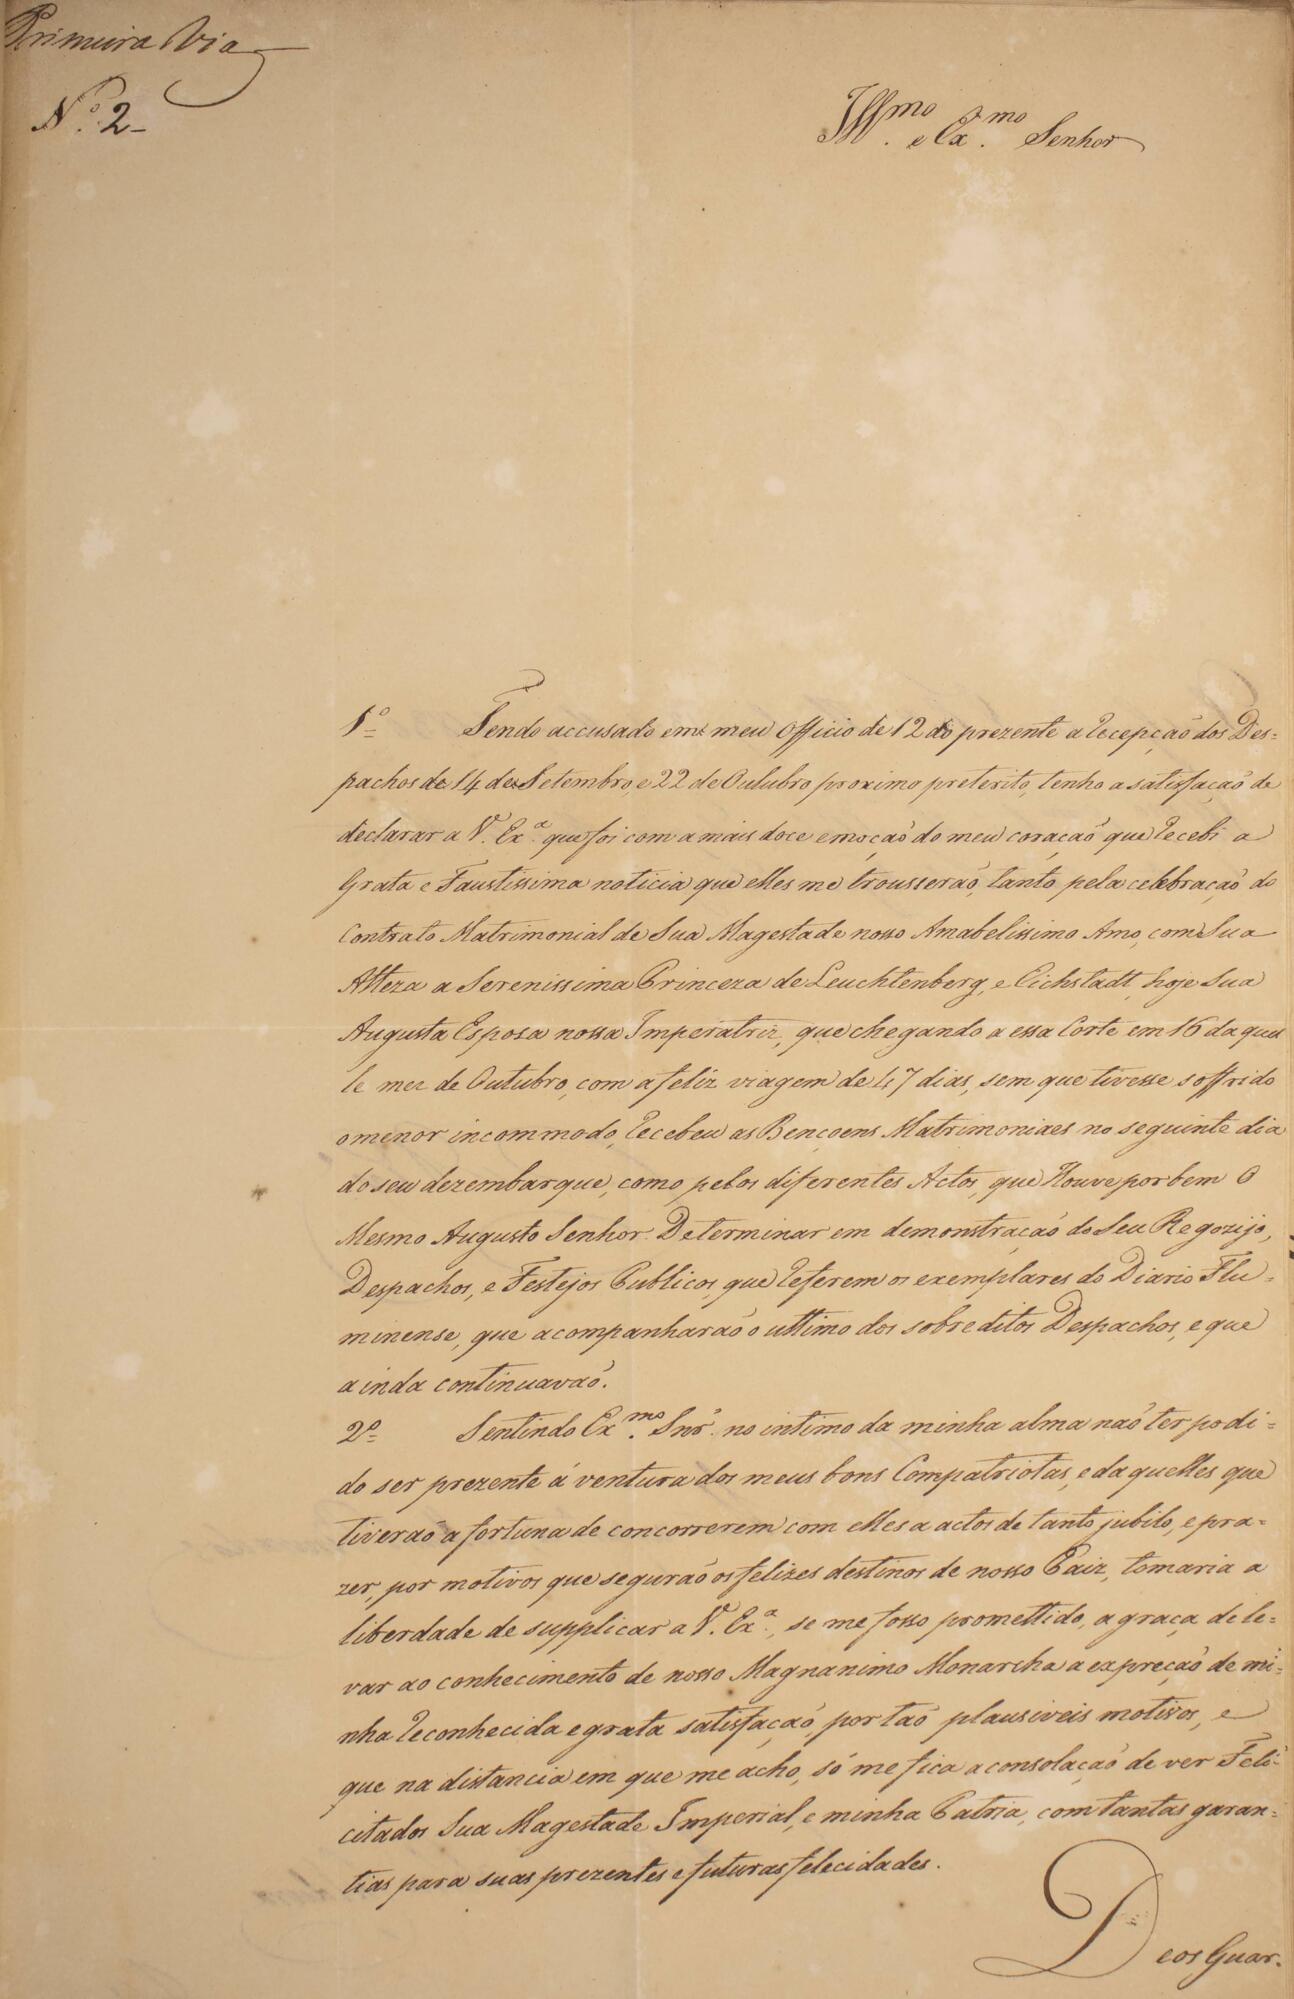 Primeira Via
Nº. 2_
Illmo. e Exmo. Senhor
1º Tendo accusado em meu Officio de 12 do prezente a recepção dos Des-
pachos de 14 de Setembro, e 22 de Outubro proximo preterito, tenho a satisfação de
declarar a V. Exª. que foi com a mais doce emoção do meu coração que recebi a
Grata e Faustissima noticia que elles me trousserão, tanto pela celebração do
Contrato Matrimonial de Sua Magestade nosso Amabelissimo Amo, com Sua
Alteza a Serenissima Princeza de Leuchtenberg, e Eichstadt, hoje Sua
Augusta Esposa nossa Imperatriz, que chegando a essa Corte em 16 daquel
le mez de Outubro, com a feliz viagem de 47 dias, sem que tivesse soffrido
o menor incommodo, recebeu as Bençoens Matrimoniaes no seguinte dia
do seu dezembarque, como pelos diferentes Actos, que Houve por bem O
Mesmo Augusto Senhor Determinar em demonstração do Seu Regozijo,
Despachos, e Festejos Publicos, que referem os exemplares do Diario Flu-
minense, que acompanharão o ultimo dos sobreditos Despachos, e que
ainda continuavão.
2º Sentindo Exmo. Snr. no intimo da minha alma não ter podi-
do ser prezente á ventura dos meus bons Compatriotas, e daquelles que
tiverão a fortuna de concorrerem com elles a actos de tanto jubilo, e pra-
zer, por motivos que segurão os felizes destinos de nosso Paiz, tomaria a
liberdade de supplicar a V. Exª., se me fosso promettido, a graça de le-
var ao conhecimento de nosso Magnanimo Monarcha a expreção de mi-
nha reconhecida e grata satisfação, por tão plausiveis motivos, e
que na distancia em que me acho, só me fica a consolação de ver Feli-
citados Sua Magestade Imperial, e minha Patria, com tantas garan-
tias para suas prezentes e futuras felecidades.
Deos Guar-